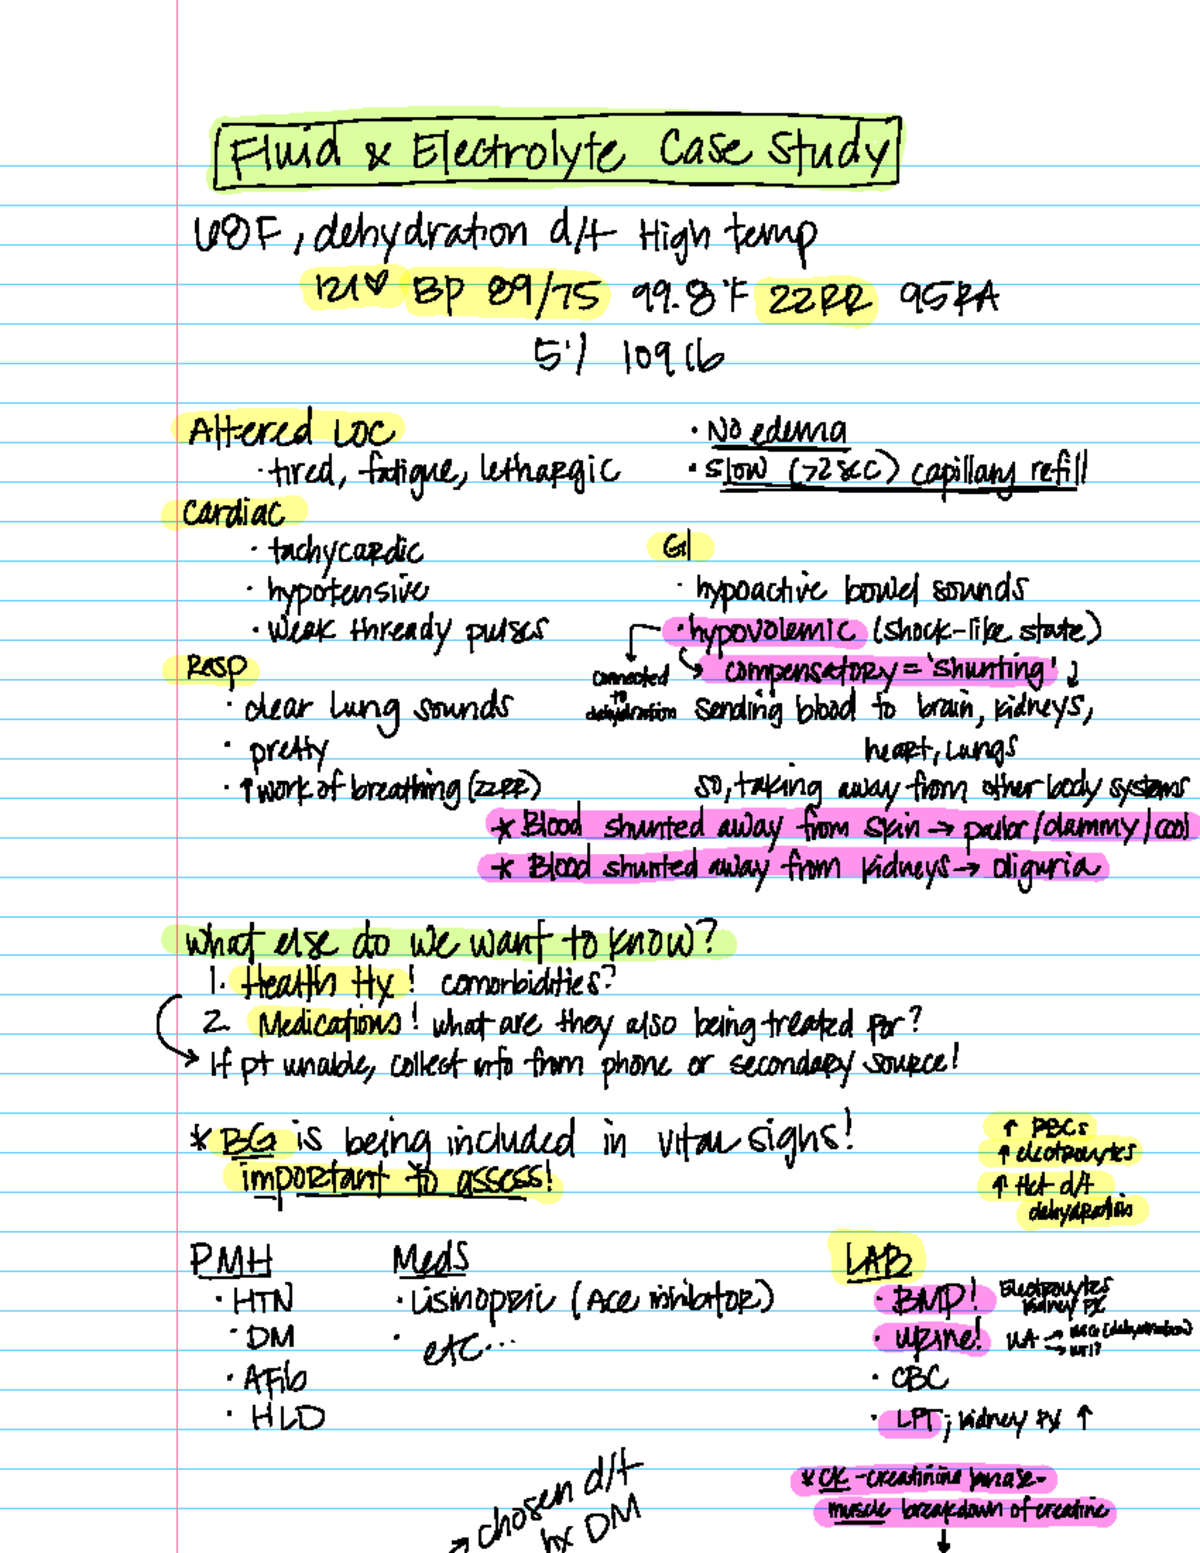 Fluid & Electrolyte Case Study
68F, dehydration d/t High temp
121♥ BP 89/75 99.8°F 22RR 95RA
5'1 109 lb
Altered LOC
· tired, fatigue, lethargic
· No edema
· Slow (>2sec) capillary refill
Cardiac
· tachycardic
· hypotensive
· weak thready pulses
Resp
· clear lung sounds
· pretty
· ↑ work of breathing (22RR)
GI
· hypoactive bowel sounds
· hypovolemic (shock-like state)
connected to dehydration
compensatory = 'shunting'
sending blood to brain, kidneys,
heart, lungs
so, taking away from other body systems
* Blood shunted away from skin → pallor/clammy/cool
* Blood shunted away from kidneys → oliguria
What else do we want to know?
1. Health Hx! comorbidities?
2. Medications! what are they also being treated for?
→ If pt unable, collect info from phone or secondary source!
* BG is being included in vital signs!
important to assess!
↑ RBCs
↑ electrolytes
↑ Hct d/t
dehydration
PMH
· HTN
· DM
· AFib
· HLD
Meds
· Lisinopril (Ace inhibitor)
· etc...
LAB
· BMP! Electrolytes
kidney fx
· urine! UA → USG (dehydration)
→ UTI?
· CBC
· LFT; kidney fx ↑
* CK - creatinine kinase -
muscle breakdown of creatine
↓
→ chosen d/t
hx DM